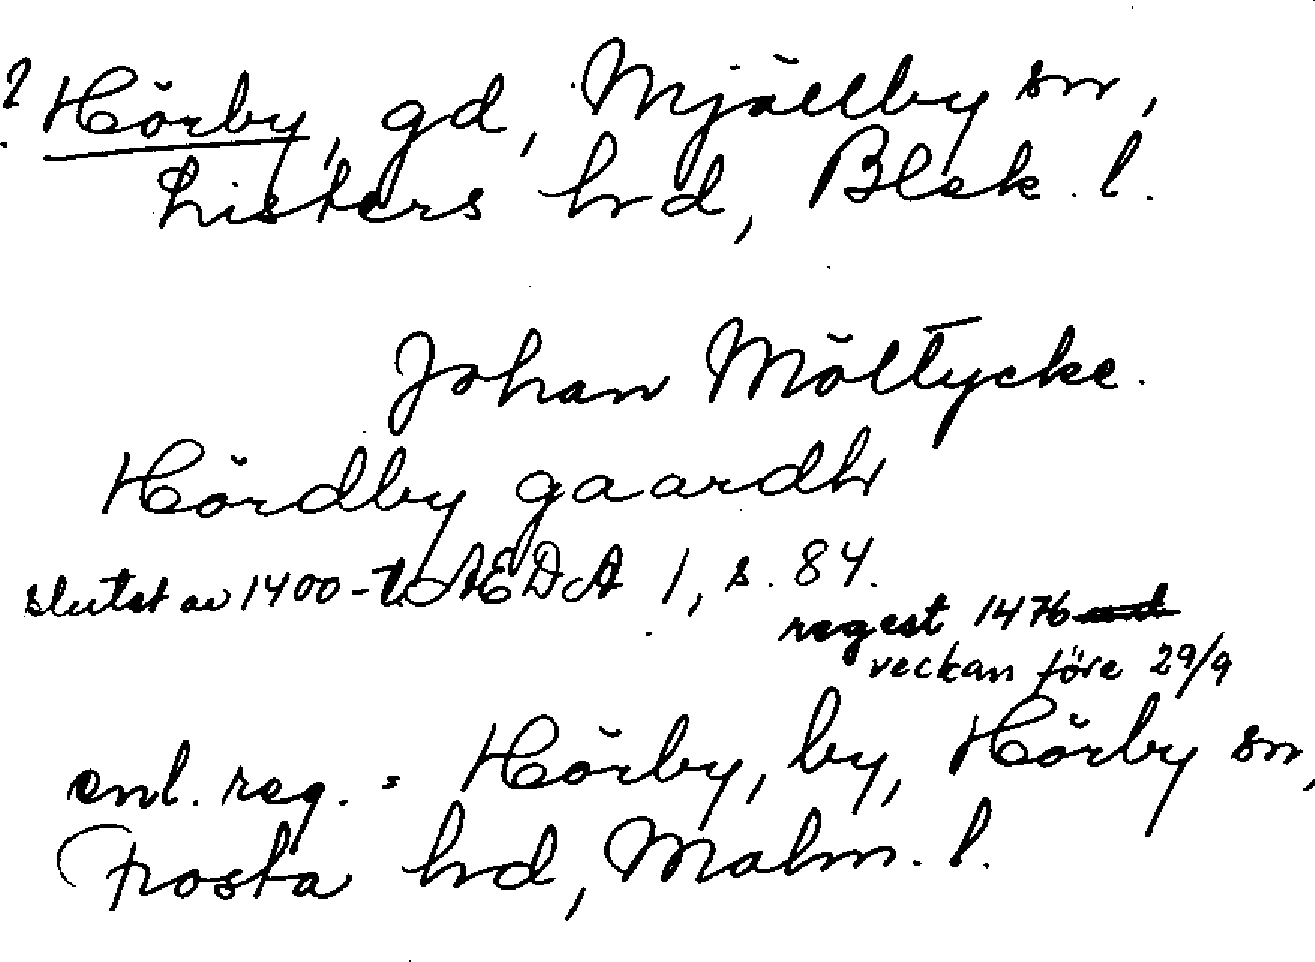 ? Hörby, gd, Mjällby sn,
Listers hrd, Blek. l.
Johan Möltycke.
Hördby gaardh
slutet av 1400-t. ÆDA 1, s. 84.
regest 1476
veckan före 29/9
enl. reg. = Hörby, by, Hörby sn,
Frosta hrd, Malm. l.